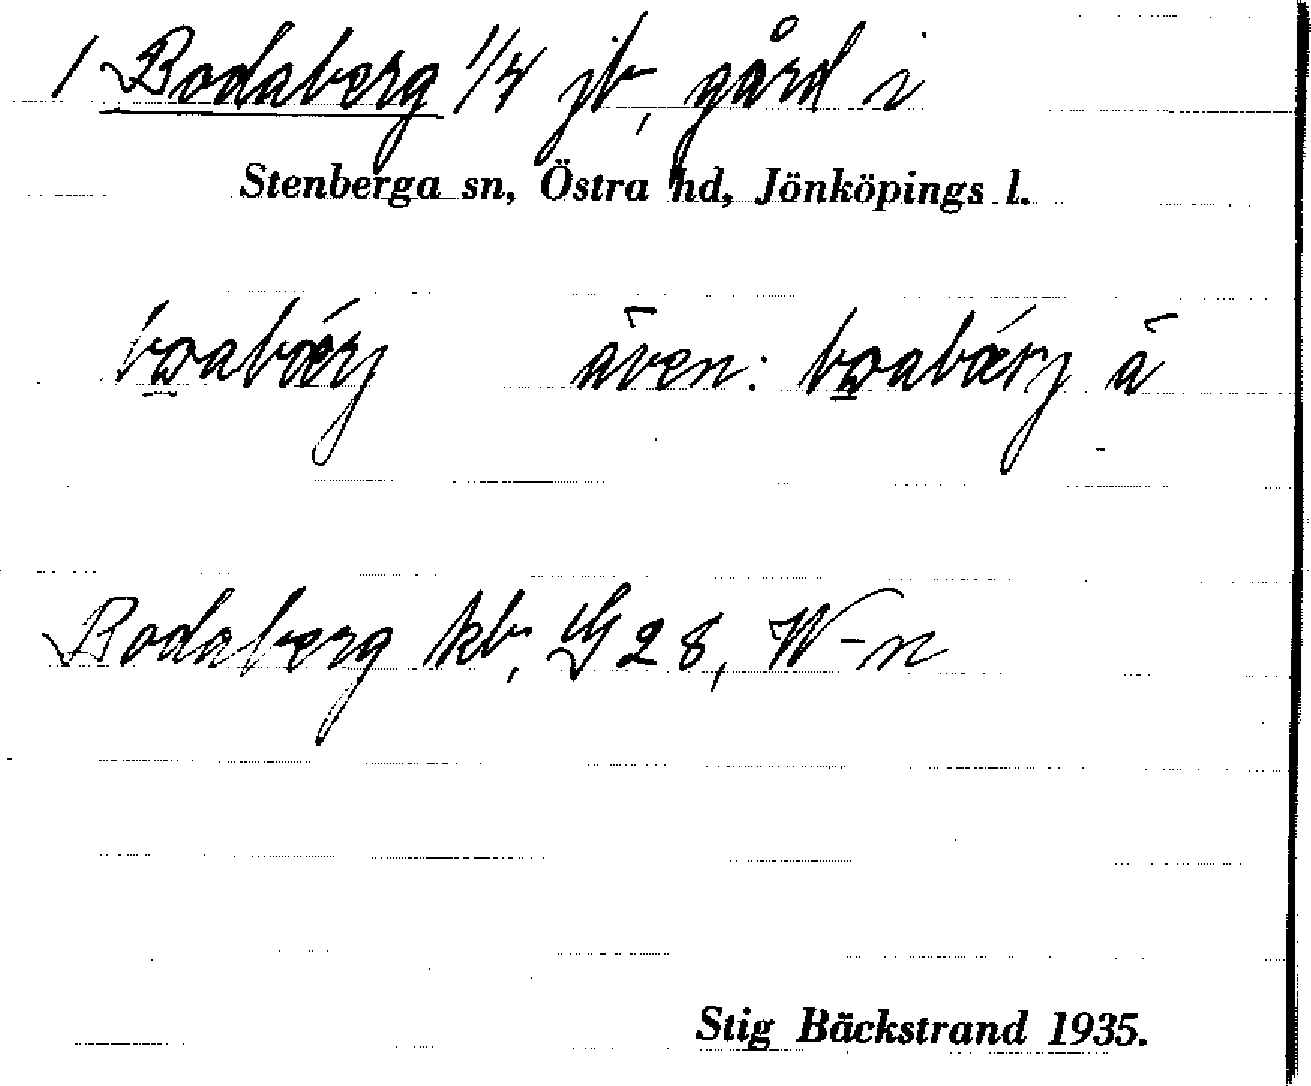 1 Bodaberg 1/4 jb, gård i
Stenberga sn, Östra hd, Jönköpings l.
även: å
Bodaberg kb, G 28, W-n
Stig Bäckstrand 1935.